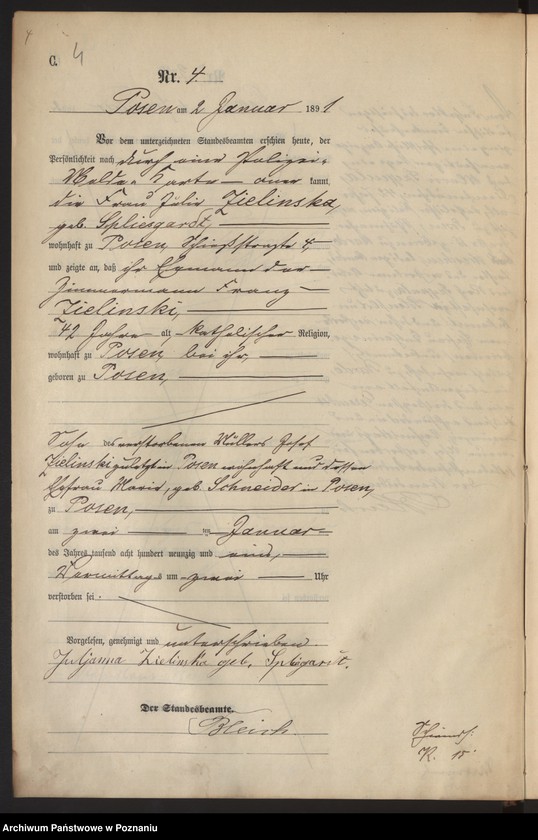 4
C. 4
Nr. 4
Posen am 2 Januar 1891
Vor dem unterzeichneten Standesbeamten erschien heute, der
Persönlichkeit nach durch eine Polizei-
Melde-Karte aner kannt,
die Frau Julie Zielinska,
geb. Spliesgardt,
wohnhaft zu Posen, Schießstraße 4,
und zeigte an, daß ihr Ehmann der
Zimmermann Franz
Zielinski,
42 Jahre alt, katholischer Religion,
wohnhaft zu Posen bei ihr,
geboren zu Posen,
Sohn des verstorbenen Müllers Josef
Zielinski zuletzt in Posen wohnhaft und dessen
Ehefrau Marie, geb. Schneider in Posen,
zu Posen,
am zwei ten Januar
des Jahres tausend acht hundert neunzig und eins,
Vormittags um zwei Uhr
verstorben sei.
Vorgelesen, genehmigt und unterschrieben
Juljanna Zielinska geb. Spligardt.
Der Standesbeamte.
Bleich.
K. 15.
Archiwum Państwowe w Poznaniu